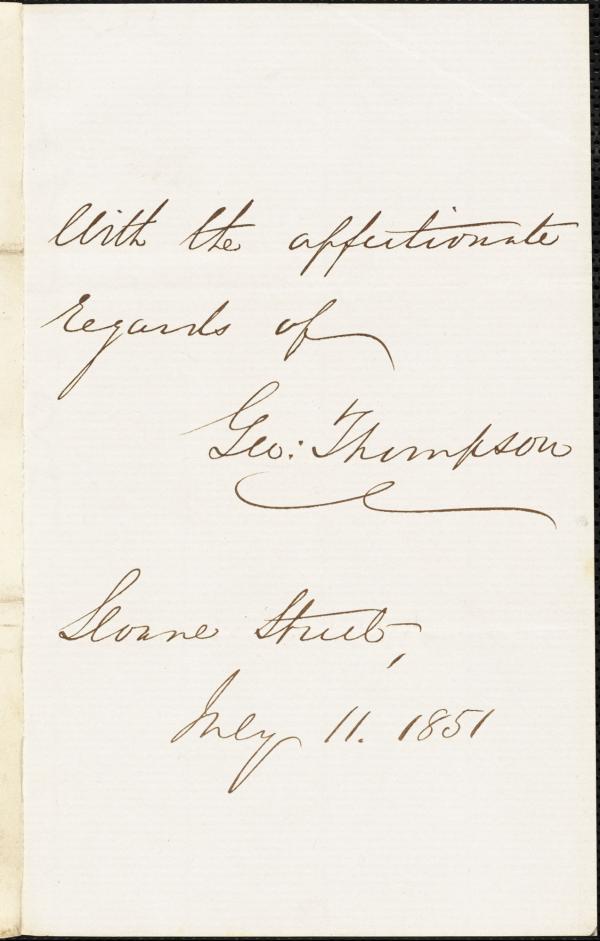 With the affectionate
regards of
Geo: Thompson
Sloane Street,
July 11. 1851